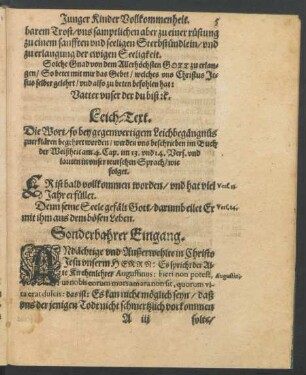 Junger Kinder Vollkommenheit. 5
barem Trost / uns sämptlichen aber zu einer rüstung
zu einem saufften und seeligen Sterbstündlein / und
zu erlangung der ewigen Seeligkeit.
Solche Gnad von dem Allerhöchsten GOTT zu erlan-
gen / So betet mit mir das Gebet / welches uns Christus Je-
sus selber gelehrt / und also zu beten befohlen hat:
Vatter unser der du bist ꝛc.
Leich-Text.
Die Wort / so bey gegenwertigem Leichbegängnüs
zu erklären begehrt worden / werden uns beschrieben im Buch
der Weißheit am 4. Cap. im 13. und 14. Vers. und
lauten in unser teutschen Sprach / wie
folget.
ER ist bald vollkommen worden / und hat viel Vers. 13.
Jahr erfüllet.
Denn seine Seele gefält Gott / darumb eilet Er Vers. 14.
mit ihm aus dem bösen Leben.
Sonderbahrer Eingang.
ANdächtige und Außerwehlte in Christo
Jesu unserm HERRN: Es spricht der Al-
te Kirchenlehrer Augustinus: fieri non potest, Augustin.
ut nobis eorum mors amara non sit, quorum vi-
ta erat dulcis: das ist: Es kan nicht möglich seyn / daß
uns der jenigen Tode nicht schmertzlich vorkommen
A iij solte /